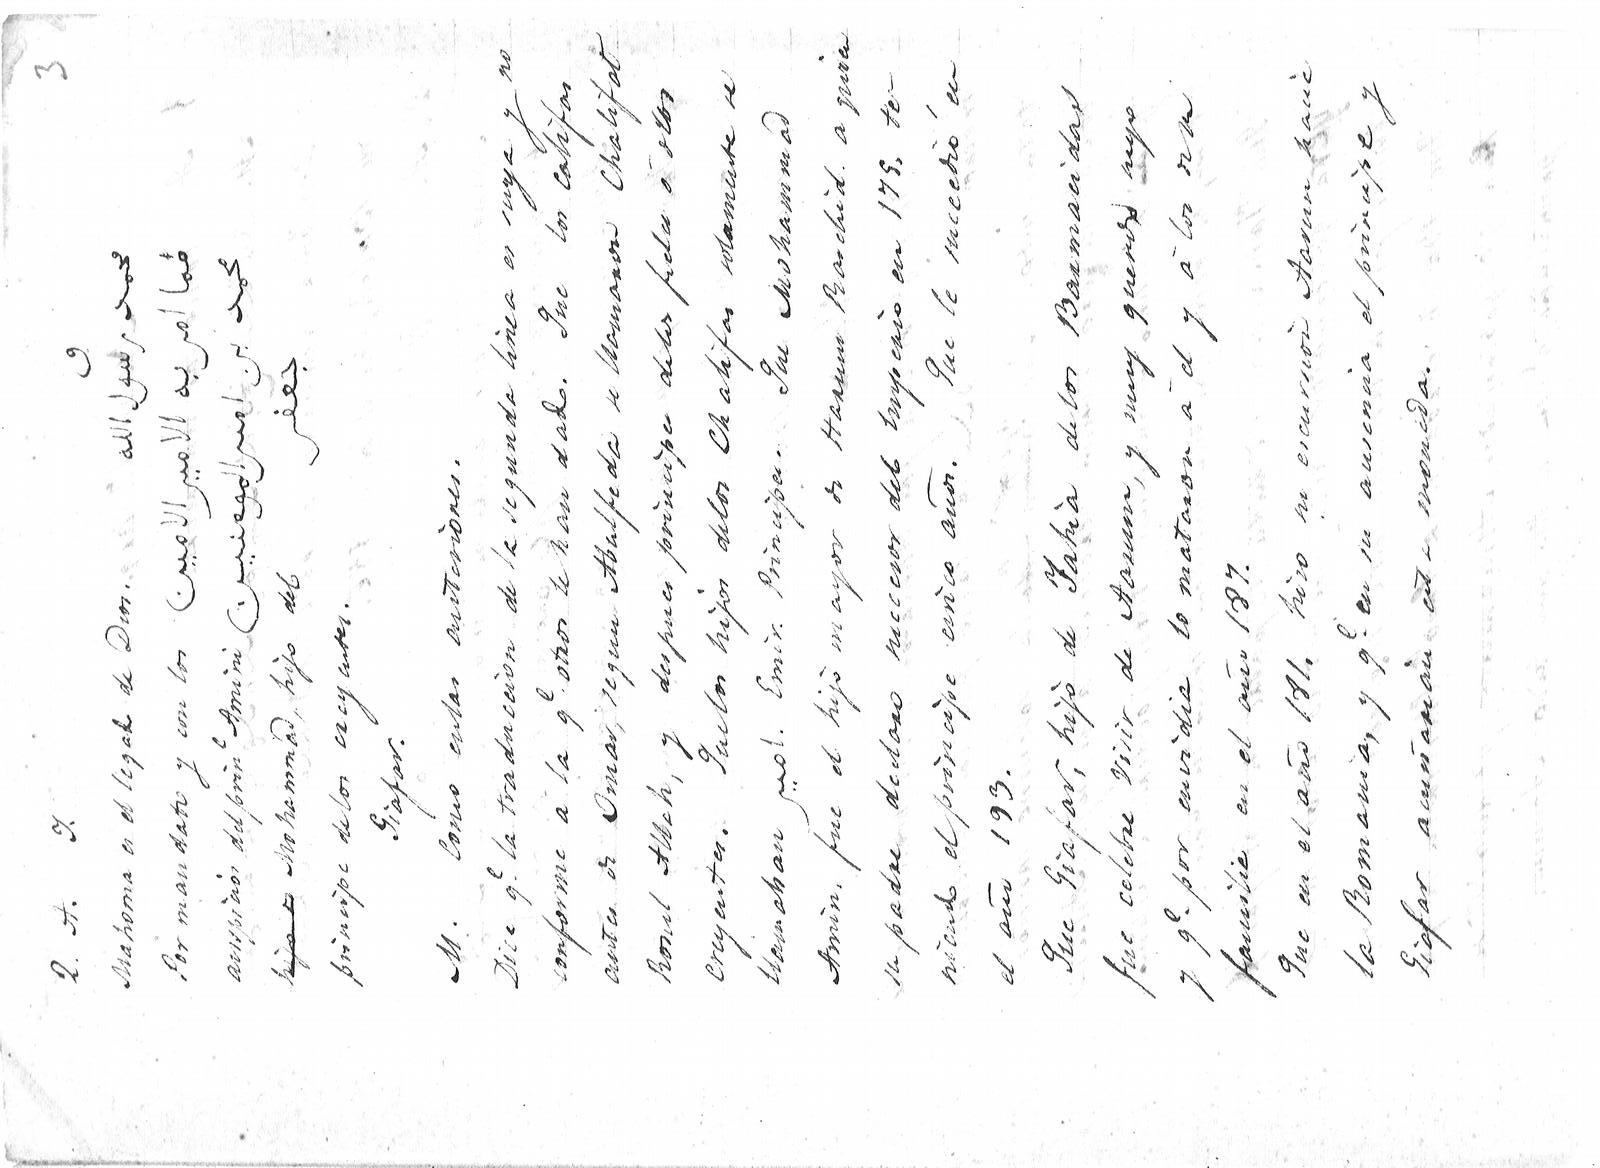 3
2. A. I. و
Mahoma es el legado de Dios. محمد رسول الله
Por mandato y con los مما امر به الامير الامين
auspicios del prin.e Amini محمد بن امير المومنين
hijo Mohammad, hijo del جعفر
principe de los creyentes.
Giafar.
M. Como en las anteriores.
Dice q.e la traduccion de la segunda linea es suya y no
conforme a la q.e otros le han dado. Que los califas
antes de Omar, segun Abulfeda se llamaron Chalifat
Rosul Allah, y despues principes delos fieles ó delos
creyentes. Que los hijos delos Chalifas solamente se
llamaban امير. Emir. Principes. Que Mohammad
Amin. fue el hijo mayor de Harun Raschid. a quien
su padre declaró succesor del Imperio en 175. te-
niendo el principe cinco años. Que le sucedió en
el año 193.
Que Giafar, hijo de Iahia delos Barmacidas
fue celebre Visir de Aarun, y muy querido suyo
y q.e por envidia lo mataron á él y á los de su
familia en el año 187.
Que en el año 181. hizo su escursion Aarun hacia
la Romania, y q.e en su ausencia el principe y
Giafar acuñarian esta moneda.